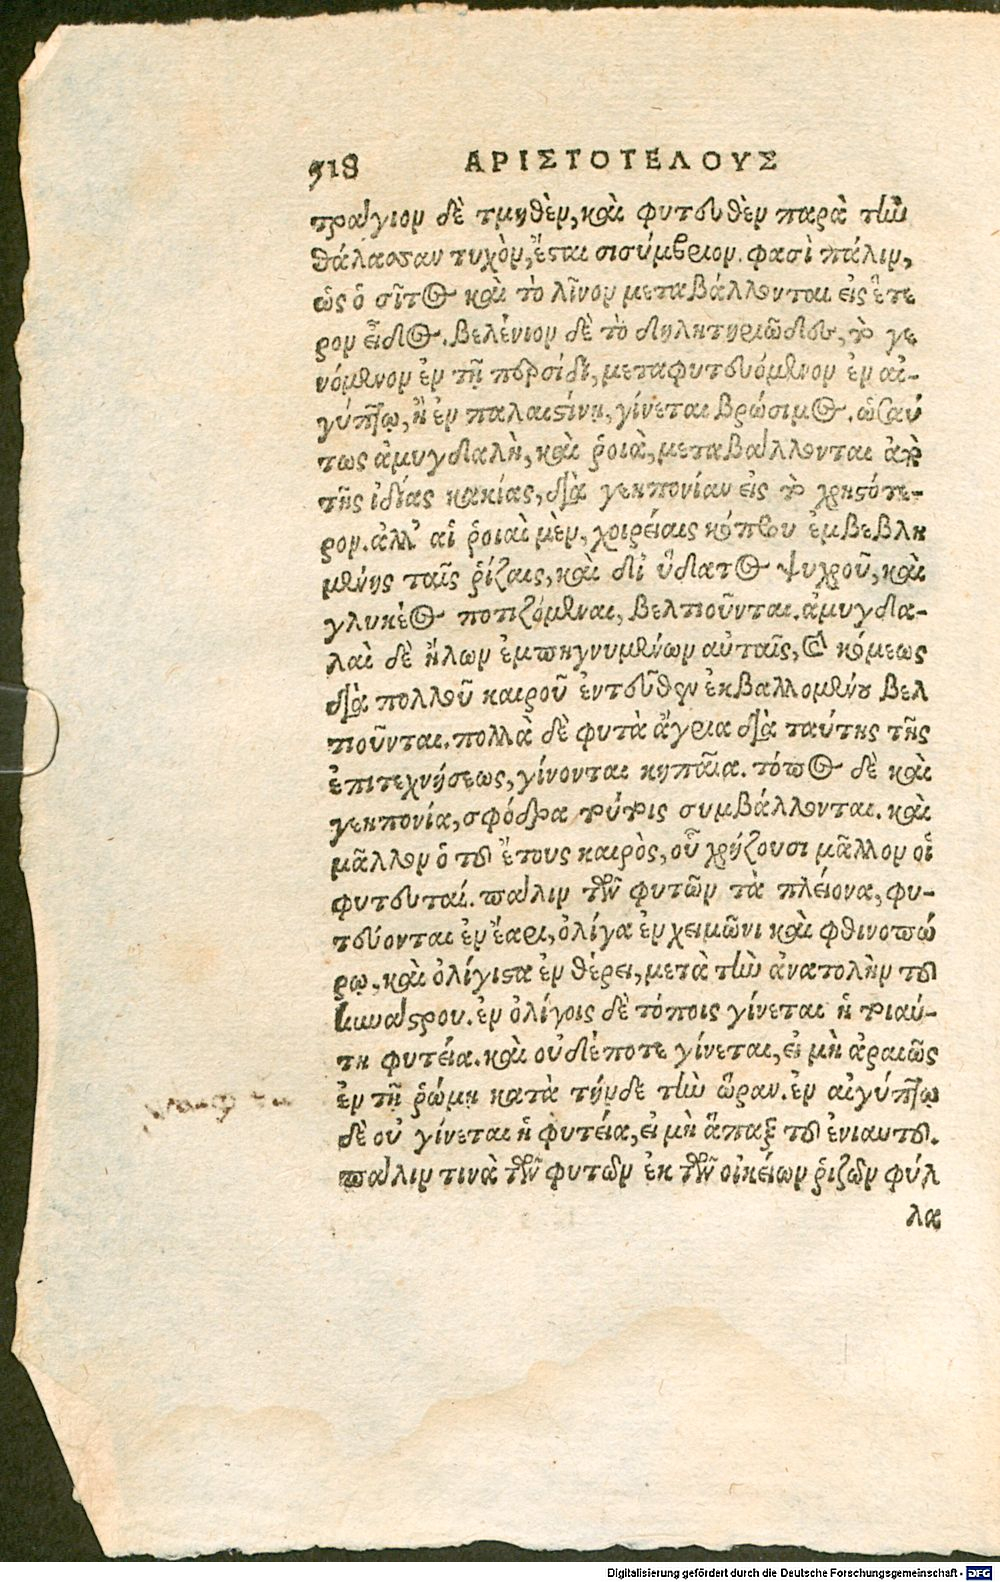 518 ΑΡΙΣΤΟΤΕΛΟΥΣ
τράγιον δὲ τμηθὲν, καὶ φυτευθὲν παρὰ τὴν
θάλασσαν τυχὸν, ἔσται σισύμβριον. φασὶ πάλιν,
ὡς ὁ σῖτος καὶ τὸ λῖνον μεταβάλλονται εἰς ἕτε
ρον εἶδος. βελένιον δὲ τὸ δηλητηριῶδες, τὸ γε
νόμενον ἐν τῇ περσίδι, μεταφυτευόμενον ἐν αἰ-
γύπτῳ, ἢ ἐν παλαιστίνῃ, γίνεται βρώσιμος. ὡσαύ
τως ἀμυγδαλῆ, καὶ ῥοιὰ, μεταβάλλονται ἀπὸ
τῆς ἰδίας κακίας, διὰ γεηπονίαν εἰς τὸ χρηστότε-
ρον. ἀλλ' αἱ ῥοιαὶ μὲν, χοιρείαις κόπρου ἐμβεβλη
μένης ταῖς ῥίζαις, καὶ δι' ὕδατος ψυχροῦ, καὶ
γλυκέος ποτιζόμεναι, βελτιοῦνται. ἀμυγδα-
λαὶ δὲ ἥλων ἐμπηγνυμένων αὐταῖς, καὶ κόμεως
διὰ πολλοῦ καιροῦ ἐντεῦθεν ἐκβαλλομένου βελ
τιοῦνται. πολλὰ δὲ φυτὰ ἄγρια διὰ ταύτης τῆς
ἐπιτεχνήσεως, γίνονται κηπαῖα. τόπος δὲ καὶ
γεηπονία, σφόδρα τούτοις συμβάλλονται. καὶ
μᾶλλον ὁ τοῦ ἔτους καιρὸς, οὗ χρήζουσι μᾶλλον οἱ
φυτευταί. πάλιν τῶν φυτῶν τὰ πλείονα, φυ-
τεύονται ἐν ἔαρι, ὀλίγα ἐν χειμῶνι καὶ φθινοπώ
ρῳ, καὶ ὀλίγιστα ἐν θέρει, μετὰ τὴν ἀνατολὴν τοῦ
κυνάστρου. ἐν ὀλίγοις δὲ τόποις γίνεται ἡ τοιαύ-
τη φυτεία. καὶ οὐδέποτε γίνεται, εἰ μὴ ἀραιῶς
ἐν τῇ ῥώμῃ κατὰ τήνδε τὴν ὥραν. ἐν αἰγύπτῳ
δὲ οὐ γίνεται ἡ φυτεία, εἰ μὴ ἅπαξ τοῦ ἐνιαυτοῦ.
πάλιν τινὰ τῶν φυτῶν ἐκ τῶν οἰκείων ῥιζῶν φύλ
λα
Digitalisierung gefördert durch die Deutsche Forschungsgemeinschaft - DFG